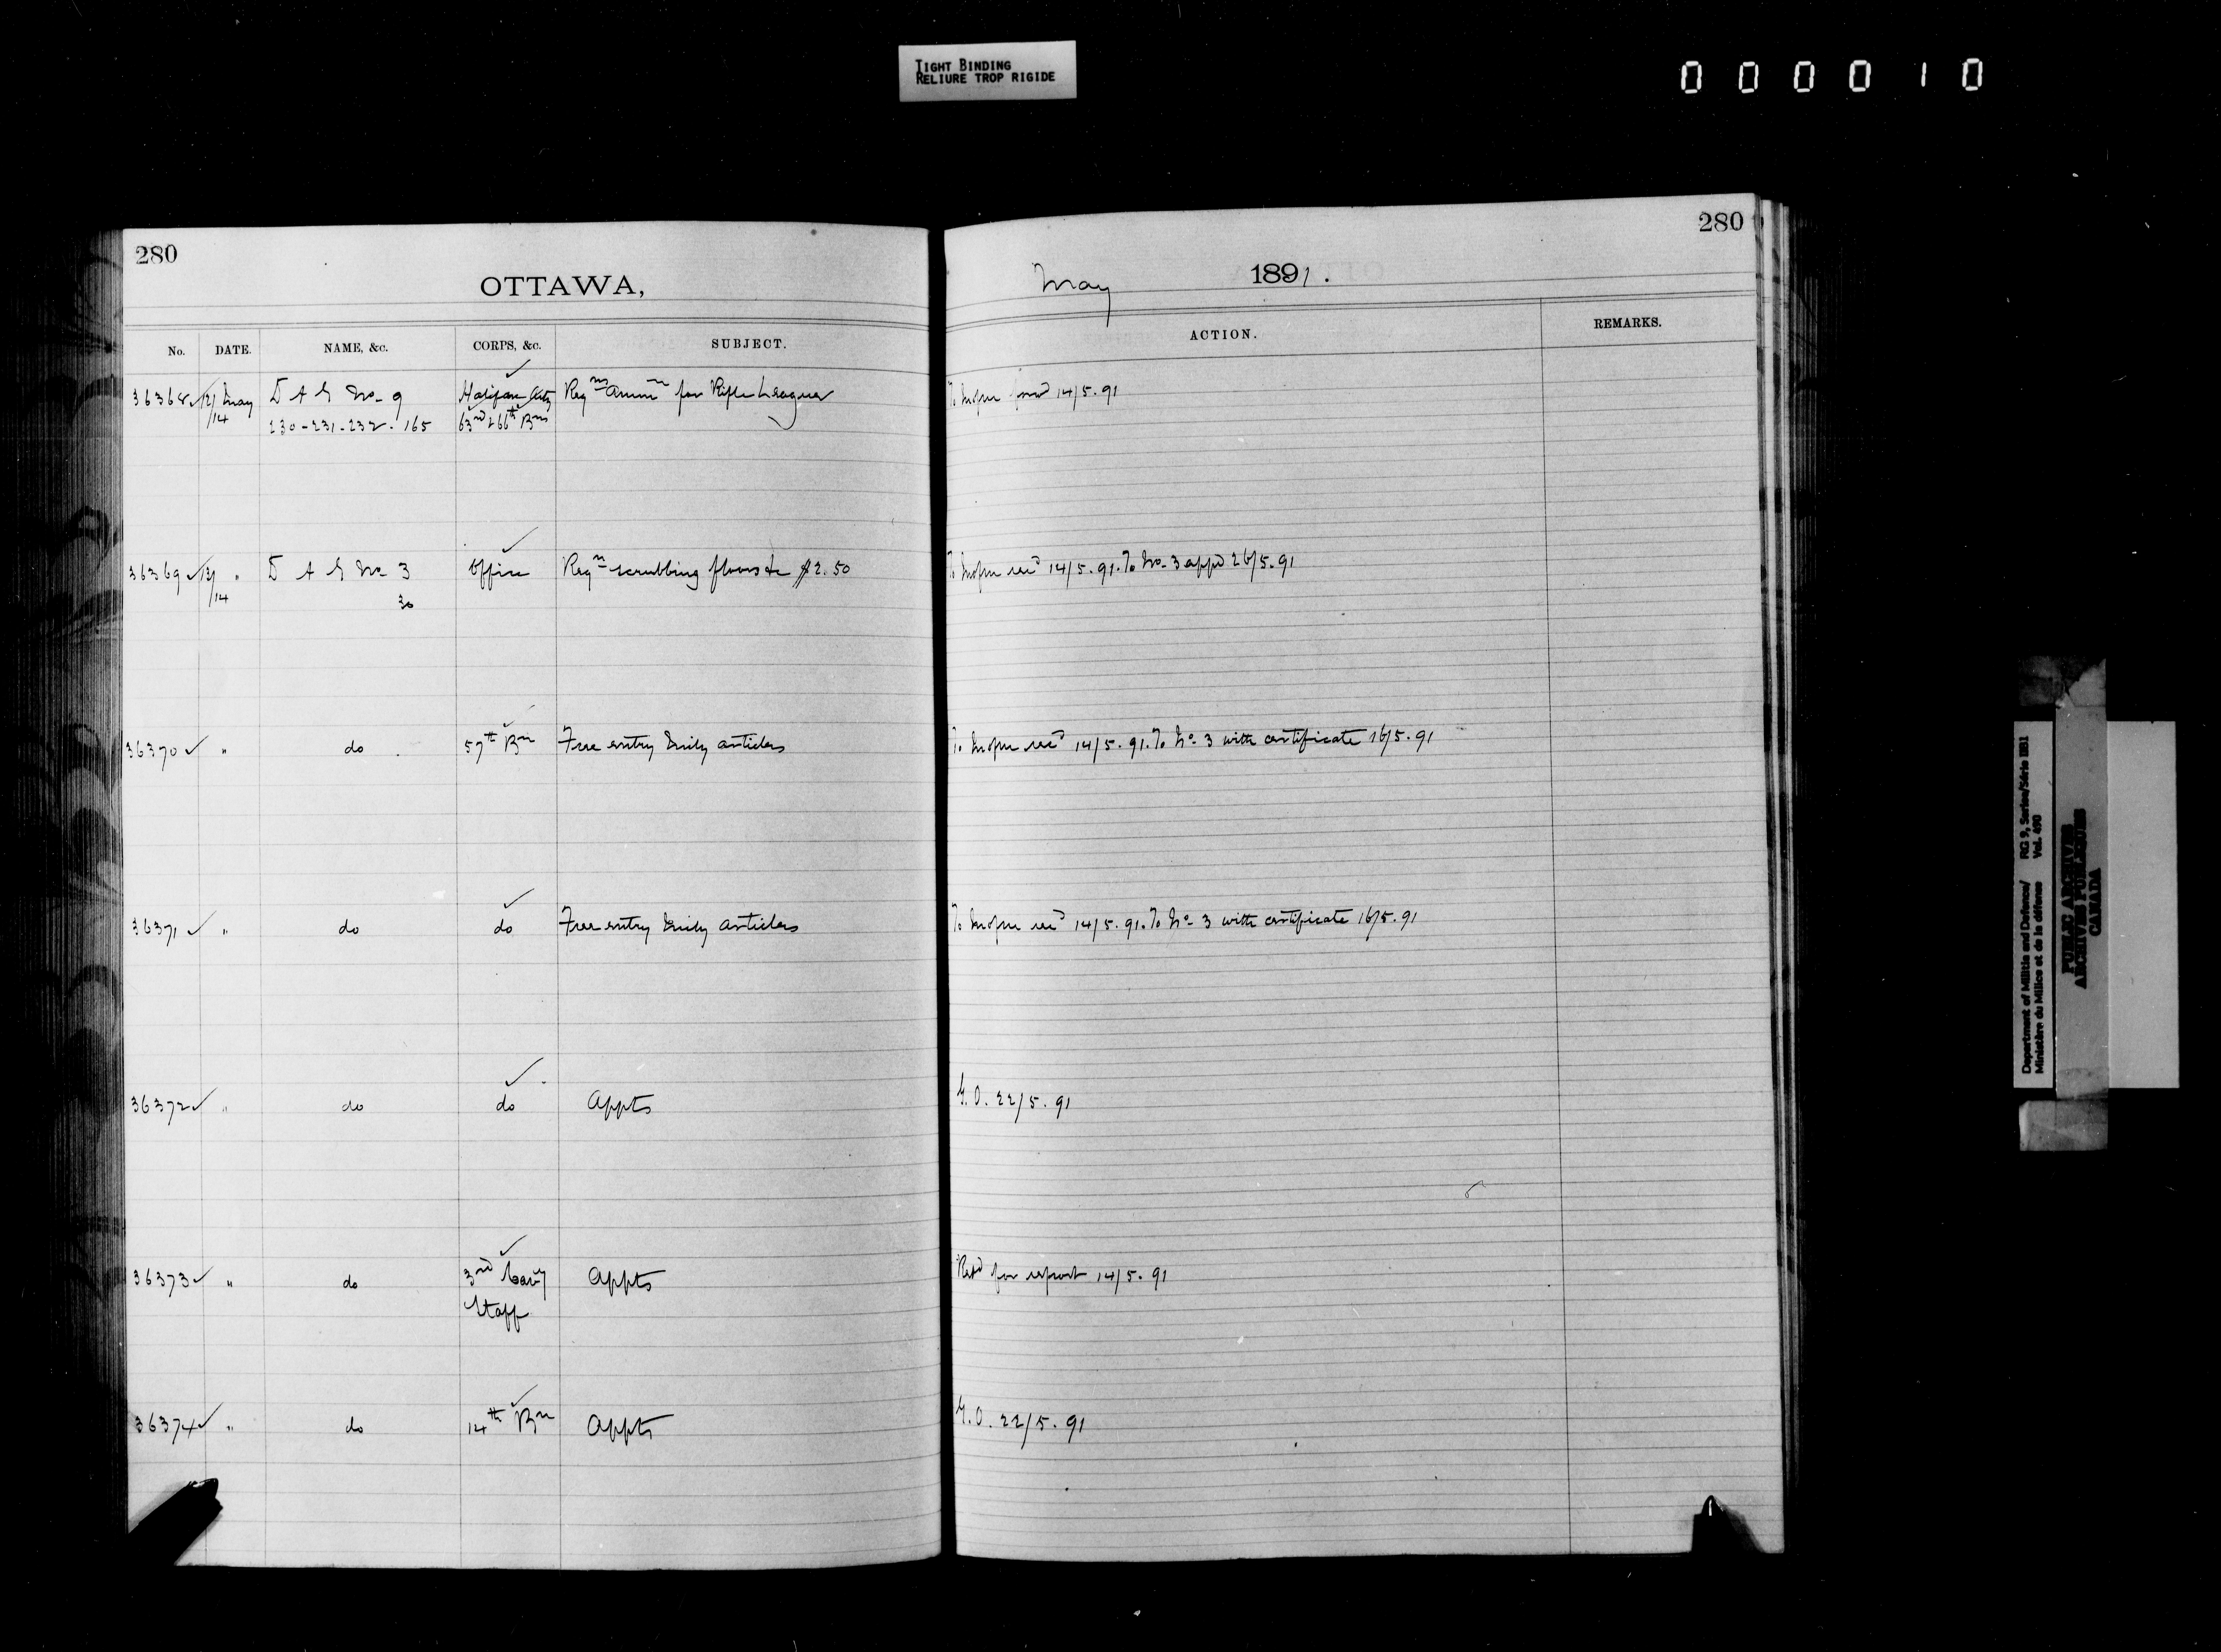 TIGHT BINDING
RELIURE TROP RIGIDE
000010
280
OTTAWA,
No. DATE. NAME, &c. CORPS, &c. SUBJECT.
36368 ✓ 12/14 May D A G No 9 Halifax Arty Reqns Ammn for Rifle League
230-231-232. 165 63rd & 66th Bns
36369 ✓ 13/14 " D A G No 3 Office Reqn scrubbing floors &c $2.50
30
36370 ✓ " do 57th Bn Free entry articles
36371 ✓ " do do Free entry articles
36372 ✓ " do do Appts
36373 ✓ " do 3rd Cavy Appts
Staff
36374 ✓ " do 14th Bn Appts
280
May 1891.
ACTION. REMARKS.
To 14/5.91
To 14/5.91. To No 3 appd 26/5.91
To 14/5.91. To No 3 with certificate 16/5.91
To 14/5.91. To No 3 with certificate 16/5.91
G.O. 22/5.91
Retd for report 14/5.91
G.O. 22/5.91
Department of Militia and Defence/ RG 9, Series/Série IIB1
Ministère du Milice et de la défense Vol. 490
PUBLIC ARCHIVES
ARCHIVES PUBLIQUES
CANADA